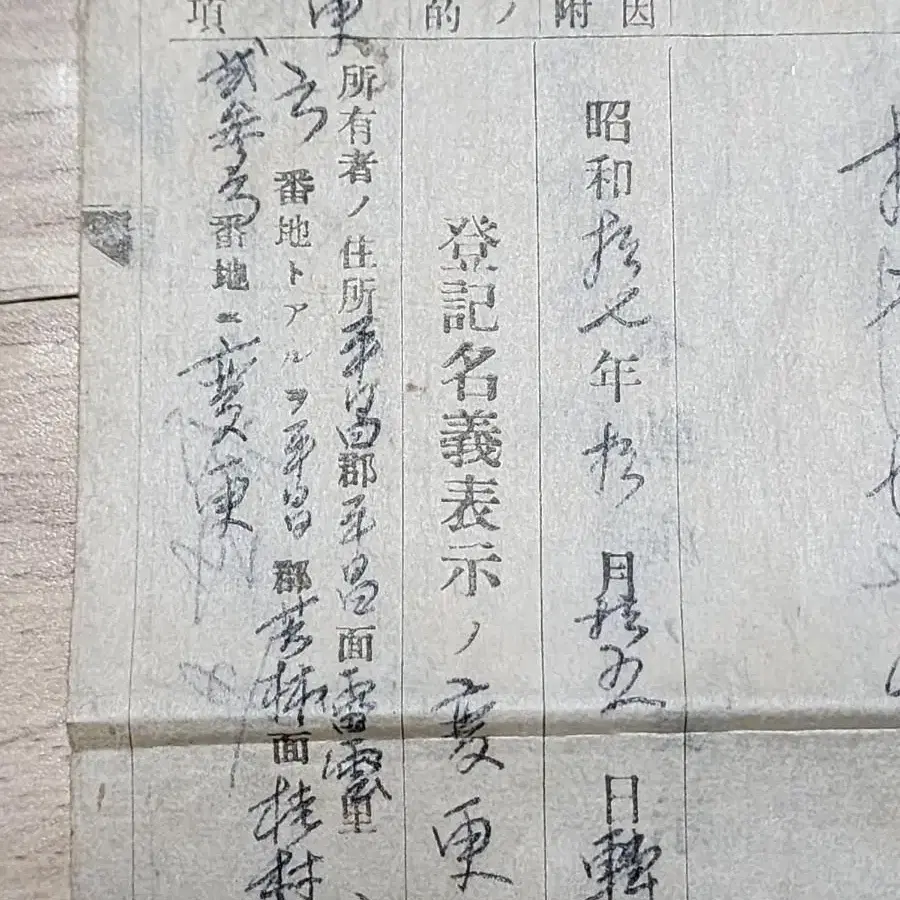 因
附
ノ
的
更
項
昭和拾七年拾月拾五日轉
登記名義表示ノ変更
所有者ノ住所平昌郡平昌面雷雲里
番地トアルヲ平昌郡芳林面桂村
貳參番地ニ変更